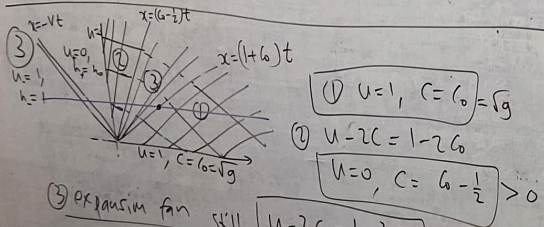 x=-Vt
x=(C₀-½)t
③
u=1,
h=1
u=0,
②
③
x=(1+C₀)t
①
u=1, C=C₀=√g
① u=1, C=C₀ =√g
② u-2C=1-2C₀
u=0, C= C₀-½ >0
③ expansion fan still